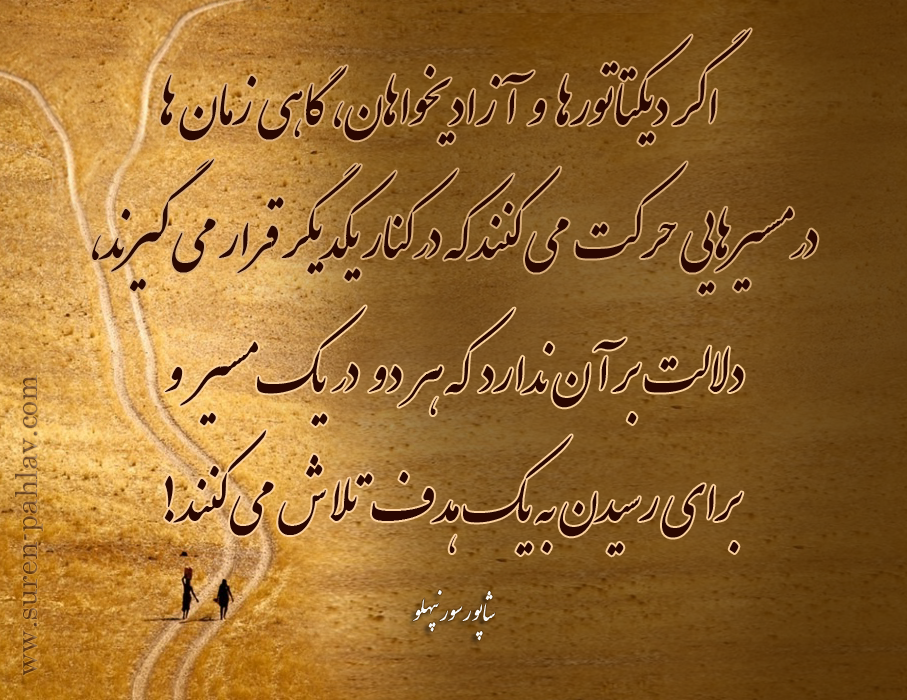 اگر دیکتاتورها و آزادیخواهان، گاهی زمان ها
در مسیرهایی حرکت می کنند که در کنار یکدیگر قرار می گیرند،
دلالت بر آن ندارد که هر دو در یک مسیر و
برای رسیدن به یک هدف تلاش می کنند!
شاپور سورنپهلو
www.suren-pahlav.com